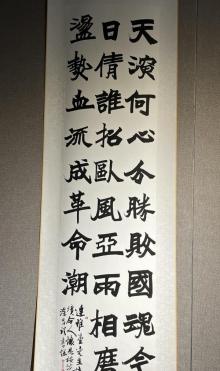 天演何心分勝敗國魂今
日倩誰招歐風亞雨相磨
盪熱血流成革命潮